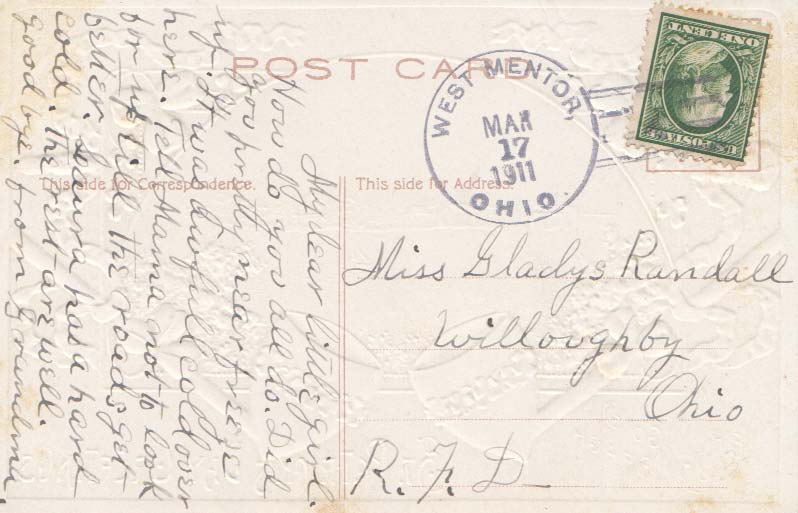 POST CARD
WEST MENTOR,
MAR
17
1911
OHIO.
ONE CENT
U.S. POSTAGE
This side for Correspondence.
This side for Address.
My dear little girl.
How do you all do. Did
you pretty near freeze
up. It was awfull cold over
here. Tell Mama not to look
for us till the roads get
better. Laura has a hard
cold. the rest are well.
good bye. from Grandma.
Miss Gladys Randall
Willoughby
Ohio
R. F. D